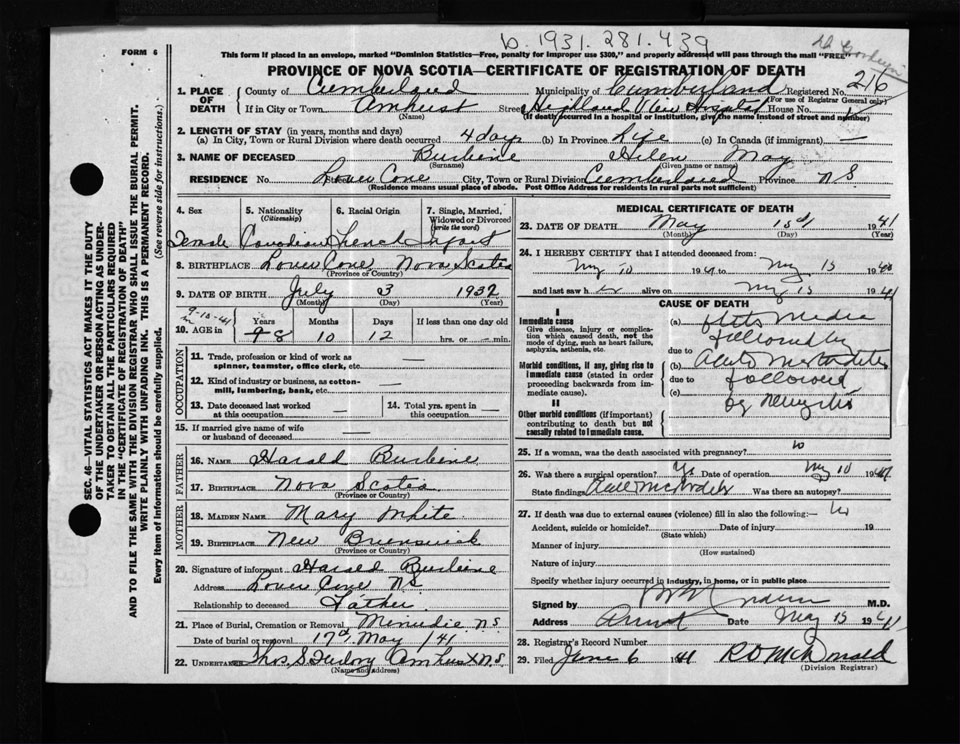 b. 1931. 281. 439
FORM 6
This form if placed in an envelope, marked "Dominion Statistics—Free, penalty for improper use $300," and properly addressed will pass through the mail "FREE"
PROVINCE OF NOVA SCOTIA—CERTIFICATE OF REGISTRATION OF DEATH
SEC. 46—VITAL STATISTICS ACT MAKES IT THE DUTY
OF THE UNDERTAKER OR PERSON ACTING AS UNDER-
TAKER TO OBTAIN ALL THE PARTICULARS REQUIRED
IN THE "CERTIFICATE OF REGISTRATION OF DEATH"
AND TO FILE THE SAME WITH THE DIVISION REGISTRAR WHO SHALL ISSUE THE BURIAL PERMIT.
WRITE PLAINLY WITH UNFADING INK. THIS IS A PERMANENT RECORD.
Every item of information should be carefully supplied. (See reverse side for instructions.)
1. PLACE OF DEATH County of Cumberland Municipality of Cumberland Registered No. 216
(For use of Registrar General only)
If in City or Town Amherst Street Highland View Hospital House No.
(Name) (If death occurred in a hospital or institution, give the name instead of street and number)
2. LENGTH OF STAY (in years, months and days)
(a) In City, Town or Rural Division where death occurred 4 days (b) In Province Life (c) In Canada (if immigrant) —
3. NAME OF DECEASED Burbine Helen May
(Surname) (Given name or names)
RESIDENCE No. Street Lower Cove City, Town or Rural Division Cumberland Province N S
(Residence means usual place of abode. Post Office Address for residents in rural parts not sufficient)
4. Sex 5. Nationality (Citizenship) 6. Racial Origin 7. Single, Married, Widowed or Divorced (write the word)
Female Canadian French Infant
8. BIRTHPLACE Lower Cove Nova Scotia
(Province or Country)
9. DATE OF BIRTH July 3 1932
(Month) (Day) (Year)
9-10-41
10. AGE in Years Months Days If less than one day old
9 8 10 12 hrs. or — min.
OCCUPATION
11. Trade, profession or kind of work as spinner, teamster, office clerk, etc. —
12. Kind of industry or business, as cotton-mill, lumbering, bank, etc. —
13. Date deceased last worked at this occupation — 14. Total yrs. spent in this occupation —
15. If married give name of wife or husband of deceased —
FATHER
16. NAME Harold Burbine
17. BIRTHPLACE Nova Scotia
(Province or Country)
MOTHER
18. MAIDEN NAME Mary White
19. BIRTHPLACE New Brunswick
(Province or Country)
20. Signature of informant Harold Burbine
Address Lower Cove N.S.
Relationship to deceased Father
21. Place of Burial, Cremation or Removal Minudie N.S.
Date of burial or removal 17th May /41
22. UNDERTAKER Thos. S. Amherst N.S.
(Name and address)
MEDICAL CERTIFICATE OF DEATH
23. DATE OF DEATH May 15th 1941
(Month) (Day) (Year)
24. I HEREBY CERTIFY that I attended deceased from:
My 10 1941 to My 15 1941
and last saw her alive on My 15 1941
CAUSE OF DEATH
I
Immediate cause
Give disease, injury or complication which caused death, not the mode of dying, such as heart failure, asphyxia, asthenia, etc.
(a) Otitis Media
followed by
due to
Morbid conditions, if any, giving rise to immediate cause (stated in order proceeding backwards from immediate cause).
(b) Acute Mastoiditis
due to followed
(c) by
II
Other morbid conditions (if important) contributing to death but not causally related to immediate cause.
25. If a woman, was the death associated with pregnancy? no
26. Was there a surgical operation? yes Date of operation My 10 1941
State findings Acute Mastoiditis Was there an autopsy?
27. If death was due to external causes (violence) fill in also the following:— no
Accident, suicide or homicide? Date of injury 19
(State which)
Manner of injury
(How sustained)
Nature of injury
Specify whether injury occurred in industry, in home, or in public place
Signed by M.D.
Address Amherst Date May 15 1941
28. Registrar's Record Number
29. Filed June 6 1941 R D McDonald
(Division Registrar)